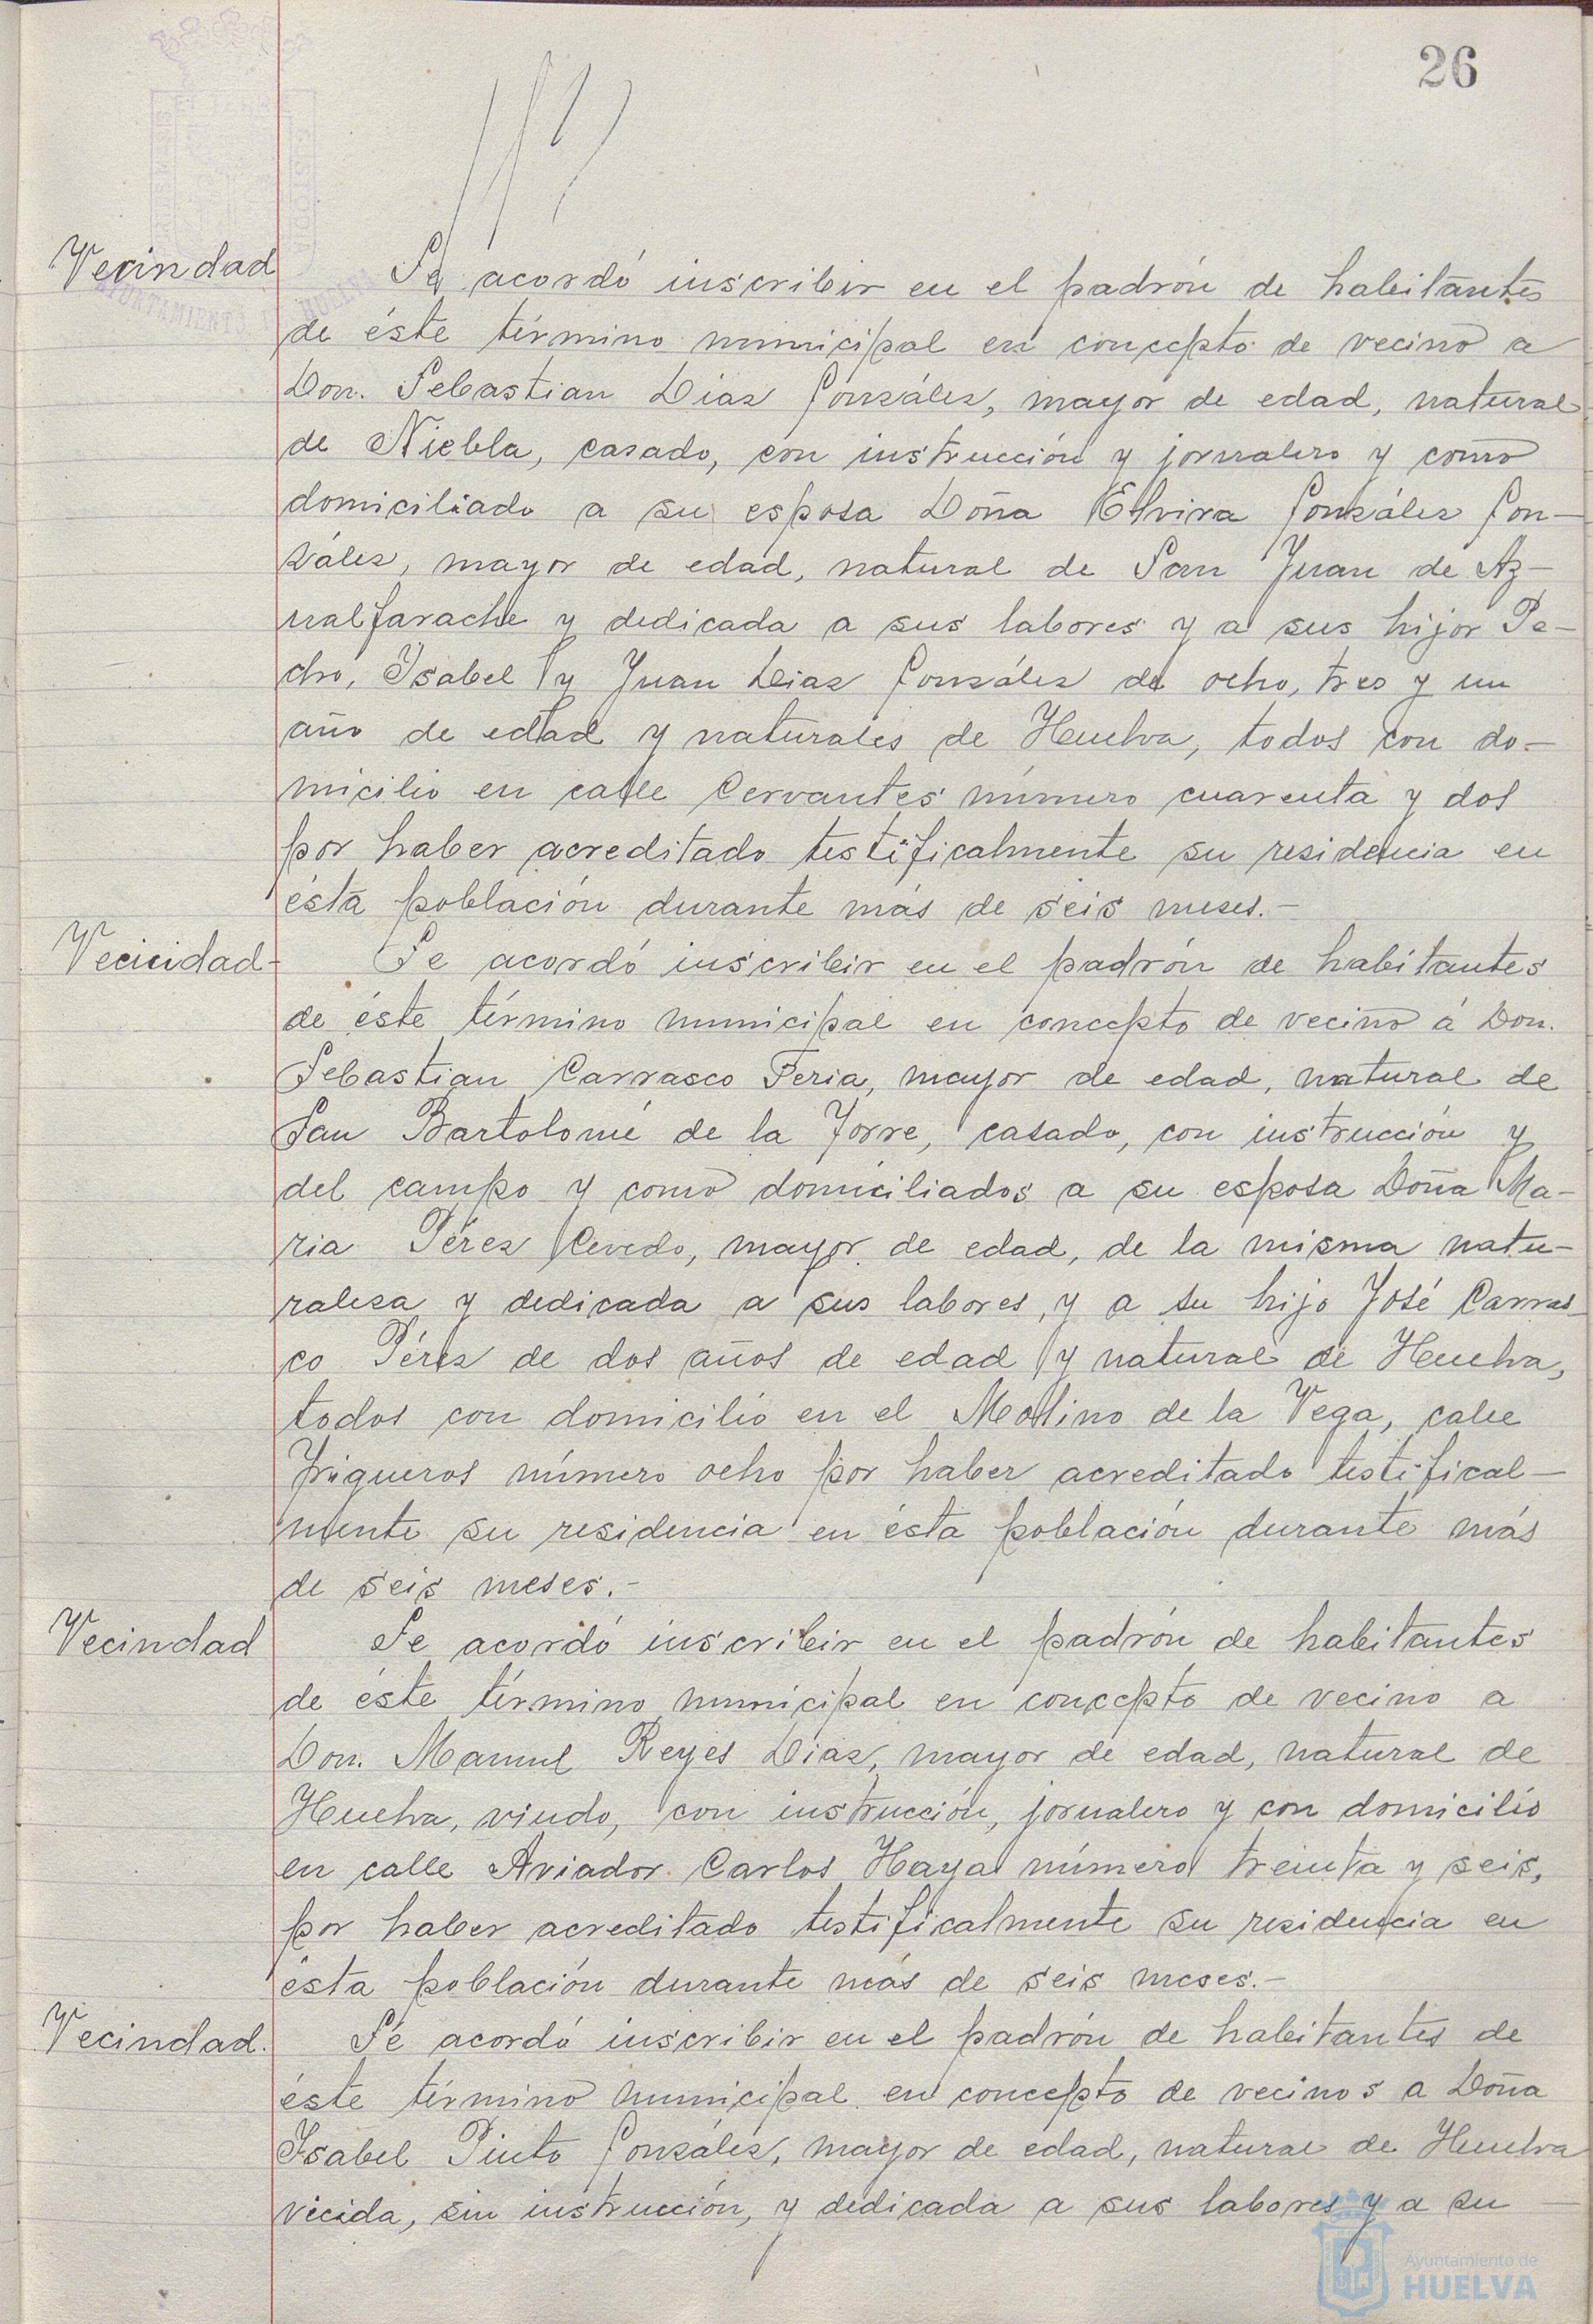 26
Vecindad
Se acordó inscribir en el padrón de habitantes
de éste término municipal en concepto de vecino a
Don. Sebastian Diaz González, mayor de edad, natural
de Niebla, casado, con instrucción y jornalero y como
domiciliado a su esposa Doña Elvira González Gon-
zález, mayor de edad, natural de San Juan de Az-
nalfarache y dedicada a sus labores y a sus hijos Pe-
dro, Isabel y Juan Diaz González de ocho, tres y un
año de edad y naturales de Huelva, todos con do-
micilio en calle Cervantes número cuarenta y dos
por haber acreditado testificalmente su residencia en
ésta población durante más de seis meses.-
Vecindad-
Se acordó inscribir en el padrón de habitantes
de éste término municipal en concepto de vecino á Don.
Sebastian Carrasco Feria, mayor de edad, natural de
San Bartolomé de la Torre, casado, con instrucción y
del campo y como domiciliados a su esposa Doña Ma-
ria Pérez Cevedo, mayor de edad, de la misma natu-
raleza y dedicada a sus labores, y a su hijo José Carras-
co Pérez de dos años de edad y natural de Huelva,
todos con domicilio en el Molino de la Vega, calle
Trigueros número ocho por haber acreditado testifical-
mente su residencia en ésta población durante más
de seis meses.-
Vecindad
Se acordó inscribir en el padrón de habitantes
de éste término municipal en concepto de vecino a
Don. Manuel Reyes Diaz, mayor de edad, natural de
Huelva, viudo, con instrucción, jornalero y con domicilio
en calle Aviador Carlos Haya número treinta y seis,
por haber acreditado testificalmente su residencia en
ésta población durante más de seis meses.-
Vecindad.
Se acordó inscribir en el padrón de habitantes de
éste término municipal en concepto de vecinos a Doña
Isabel Pinto González, mayor de edad, natural de Huelva
viuda, sin instrucción, y dedicada a sus labores y a su
AYUNTAMIENTO
Ayuntamiento de
HUELVA